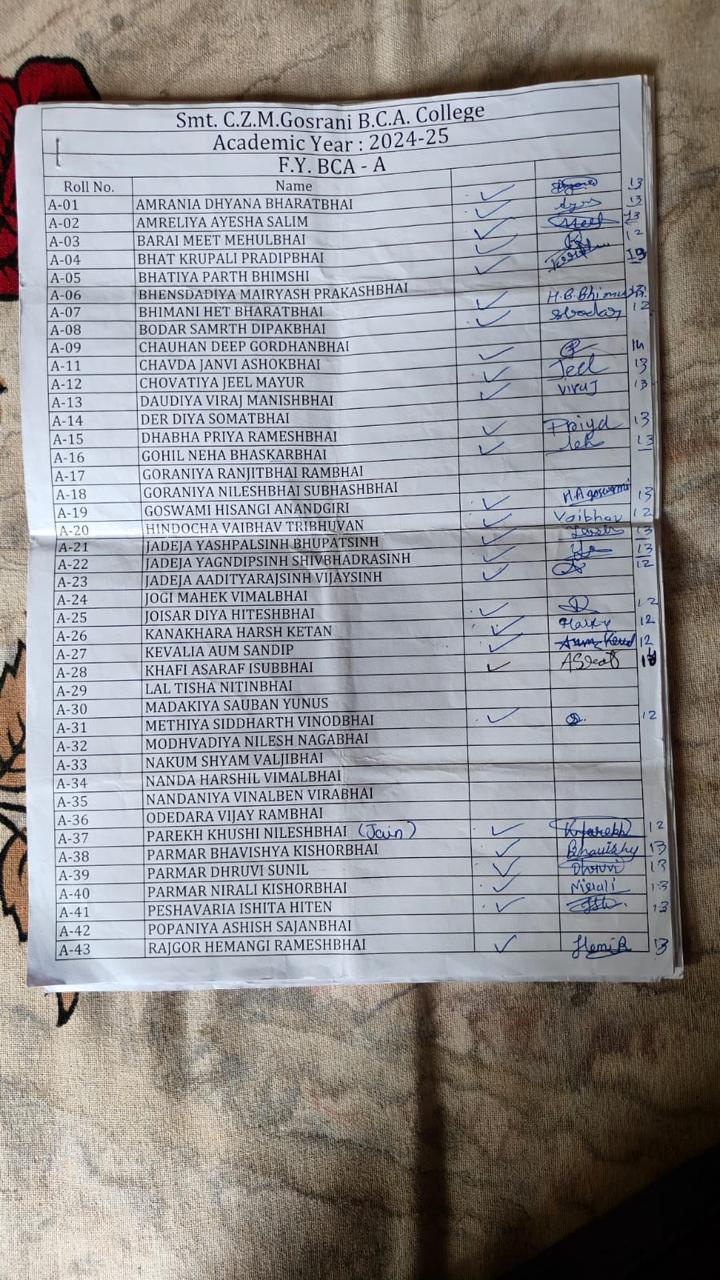 Smt. C.Z.M.Gosrani B.C.A. College
Academic Year : 2024-25
F.Y. BCA - A
Roll No. Name
A-01 AMRANIA DHYANA BHARATBHAI ✓ 13
A-02 AMRELIYA AYESHA SALIM ✓ 13
A-03 BARAI MEET MEHULBHAI ✓ 13
A-04 BHAT KRUPALI PRADIPBHAI ✓ 12
A-05 BHATIYA PARTH BHIMSHI ✓
A-06 BHENSDADIYA MAIRYASH PRAKASHBHAI
A-07 BHIMANI HET BHARATBHAI ✓ H.B.Bhimani
A-08 BODAR SAMRTH DIPAKBHAI ✓ 12
A-09 CHAUHAN DEEP GORDHANBHAI
A-11 CHAVDA JANVI ASHOKBHAI ✓
A-12 CHOVATIYA JEEL MAYUR ✓ Jeel 13
A-13 DAUDIYA VIRAJ MANISHBHAI ✓ Viraj 13
A-14 DER DIYA SOMATBHAI
A-15 DHABHA PRIYA RAMESHBHAI ✓ Priya 13
A-16 GOHIL NEHA BHASKARBHAI ✓ 13
A-17 GORANIYA RANJITBHAI RAMBHAI
A-18 GORANIYA NILESHBHAI SUBHASHBHAI
A-19 GOSWAMI HISANGI ANANDGIRI ✓ H.A.goswami 13
A-20 HINDOCHA VAIBHAV TRIBHUVAN ✓ Vaibhav 12
A-21 JADEJA YASHPALSINH BHUPATSINH ✓ 13
A-22 JADEJA YAGNDIPSINH SHIVBHADRASINH ✓ 13
A-23 JADEJA AADITYARAJSINH VIJAYSINH ✓ 12
A-24 JOGI MAHEK VIMALBHAI
A-25 JOISAR DIYA HITESHBHAI ✓ 12
A-26 KANAKHARA HARSH KETAN ✓ 12
A-27 KEVALIA AUM SANDIP ✓ 12
A-28 KHAFI ASARAF ISUBBHAI ✓
A-29 LAL TISHA NITINBHAI
A-30 MADAKIYA SAUBAN YUNUS
A-31 METHIYA SIDDHARTH VINODBHAI ✓ 12
A-32 MODHVADIYA NILESH NAGABHAI
A-33 NAKUM SHYAM VALJIBHAI
A-34 NANDA HARSHIL VIMALBHAI
A-35 NANDANIYA VINALBEN VIRABHAI
A-36 ODEDARA VIJAY RAMBHAI
A-37 PAREKH KHUSHI NILESHBHAI (Jain) ✓ 12
A-38 PARMAR BHAVISHYA KISHORBHAI ✓ 13
A-39 PARMAR DHRUVI SUNIL ✓ Dhruvi 13
A-40 PARMAR NIRALI KISHORBHAI ✓ Nirali 13
A-41 PESHAVARIA ISHITA HITEN ✓ 13
A-42 POPANIYA ASHISH SAJANBHAI
A-43 RAJGOR HEMANGI RAMESHBHAI ✓ 13